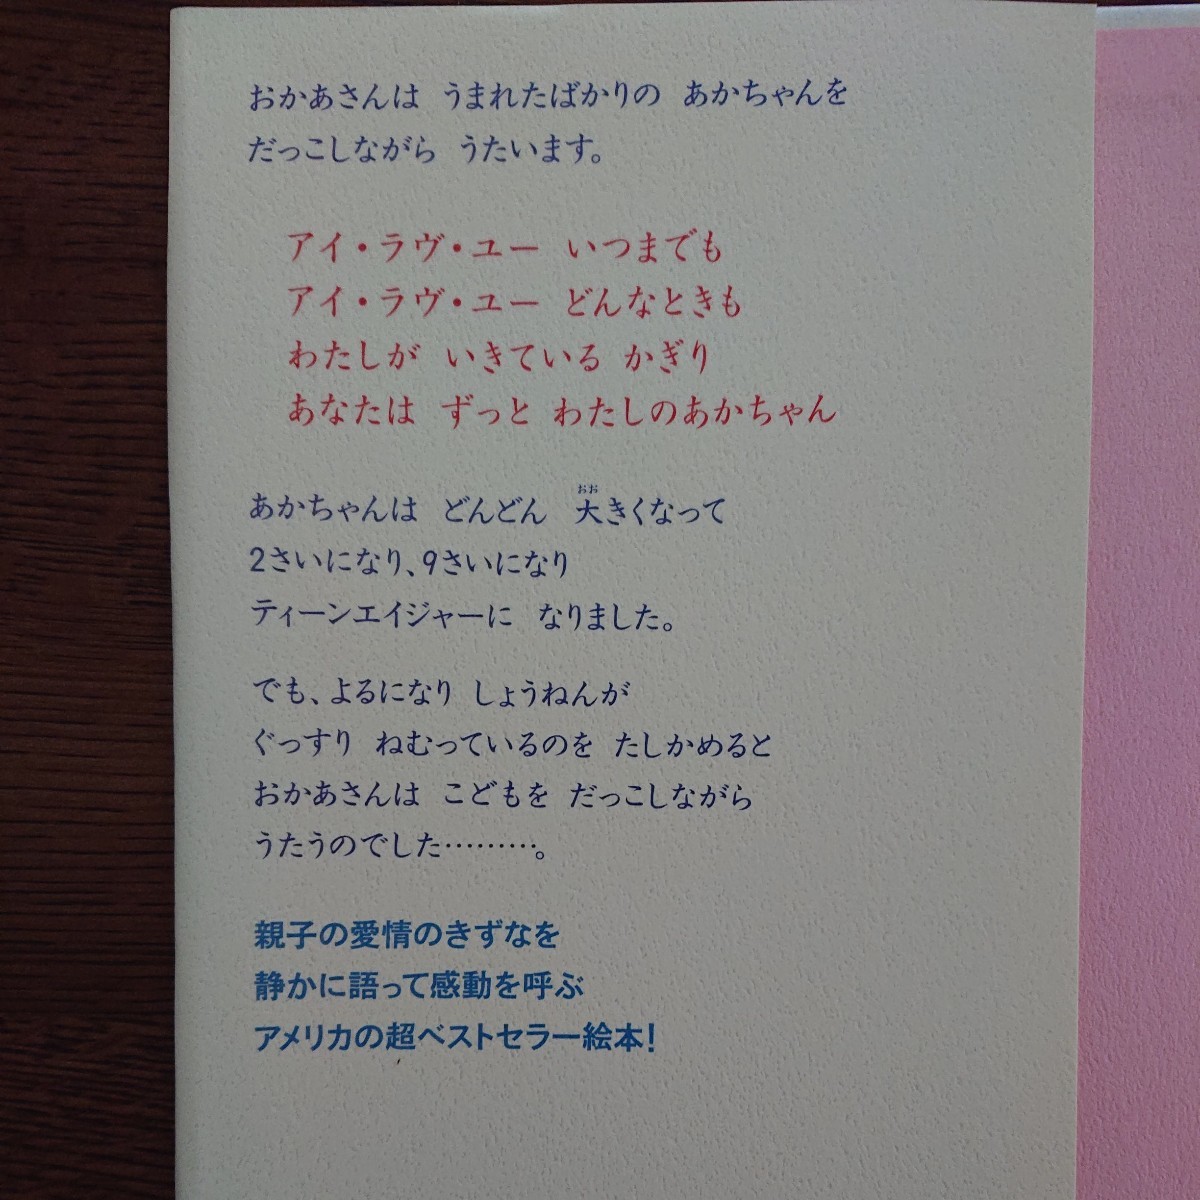 おかあさんは うまれたばかりの あかちゃんを
だっこしながら うたいます。
アイ・ラヴ・ユー いつまでも
アイ・ラヴ・ユー どんなときも
わたしが いきている かぎり
あなたは ずっと わたしのあかちゃん
おお
あかちゃんは どんどん 大きくなって
2さいになり、9さいになり
ティーンエイジャーに なりました。
でも、よるになり しょうねんが
ぐっすり ねむっているのを たしかめると
おかあさんは こどもを だっこしながら
うたうのでした………。
親子の愛情のきずなを
静かに語って感動を呼ぶ
アメリカの超ベストセラー絵本!